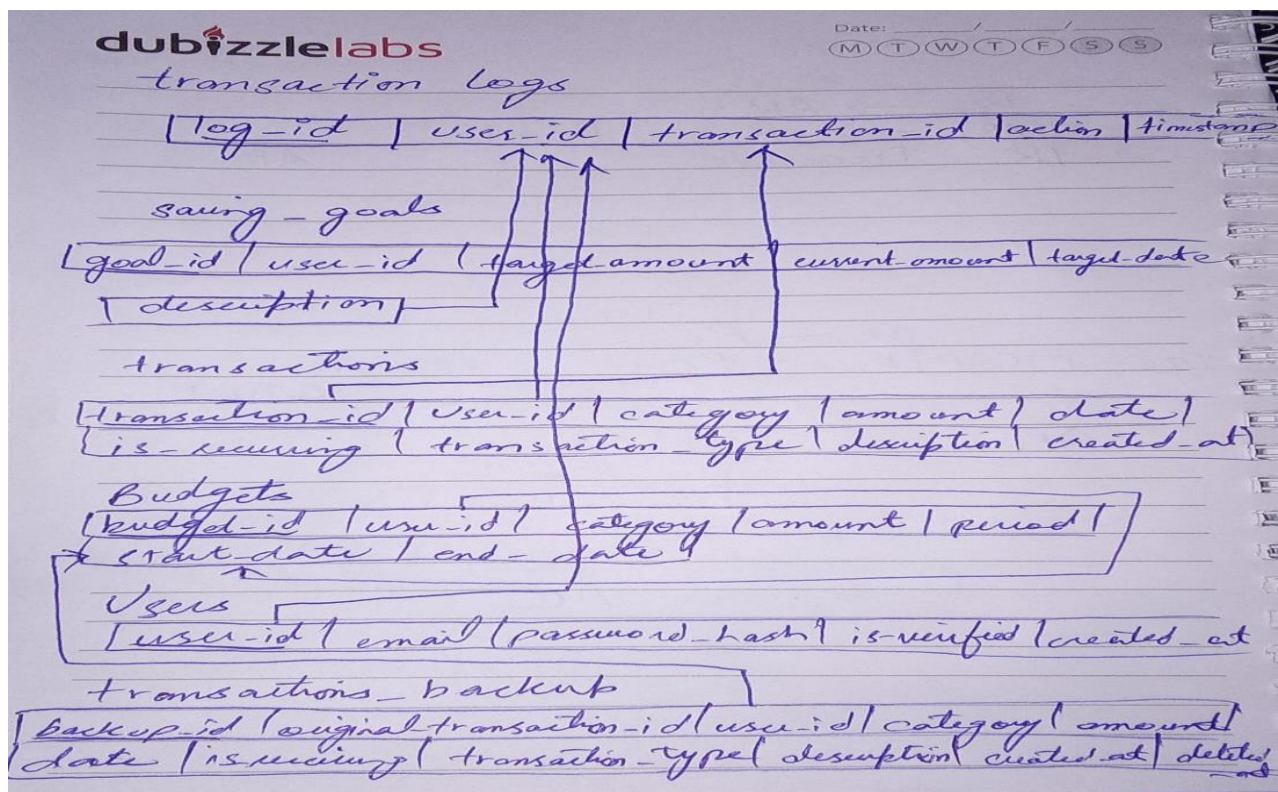 dubizzlelabs
Date: ___/___/___
M T W T F S S
transaction logs
log_id | user_id | transaction_id | action | timestamp
saving_goals
goal_id | user_id | target_amount | current_amount | target_date
description
transactions
transaction_id | user_id | category | amount | date
is_recurring | transaction_type | description | created_at
Budgets
budget_id | user_id | category | amount | period
start_date | end_date
Users
user_id | email | password_hash | is_verified | created_at
transactions_backup
backup_id | original_transaction_id | user_id | category | amount
date | is_recuring | transaction_type | description | created_at | deleted_at